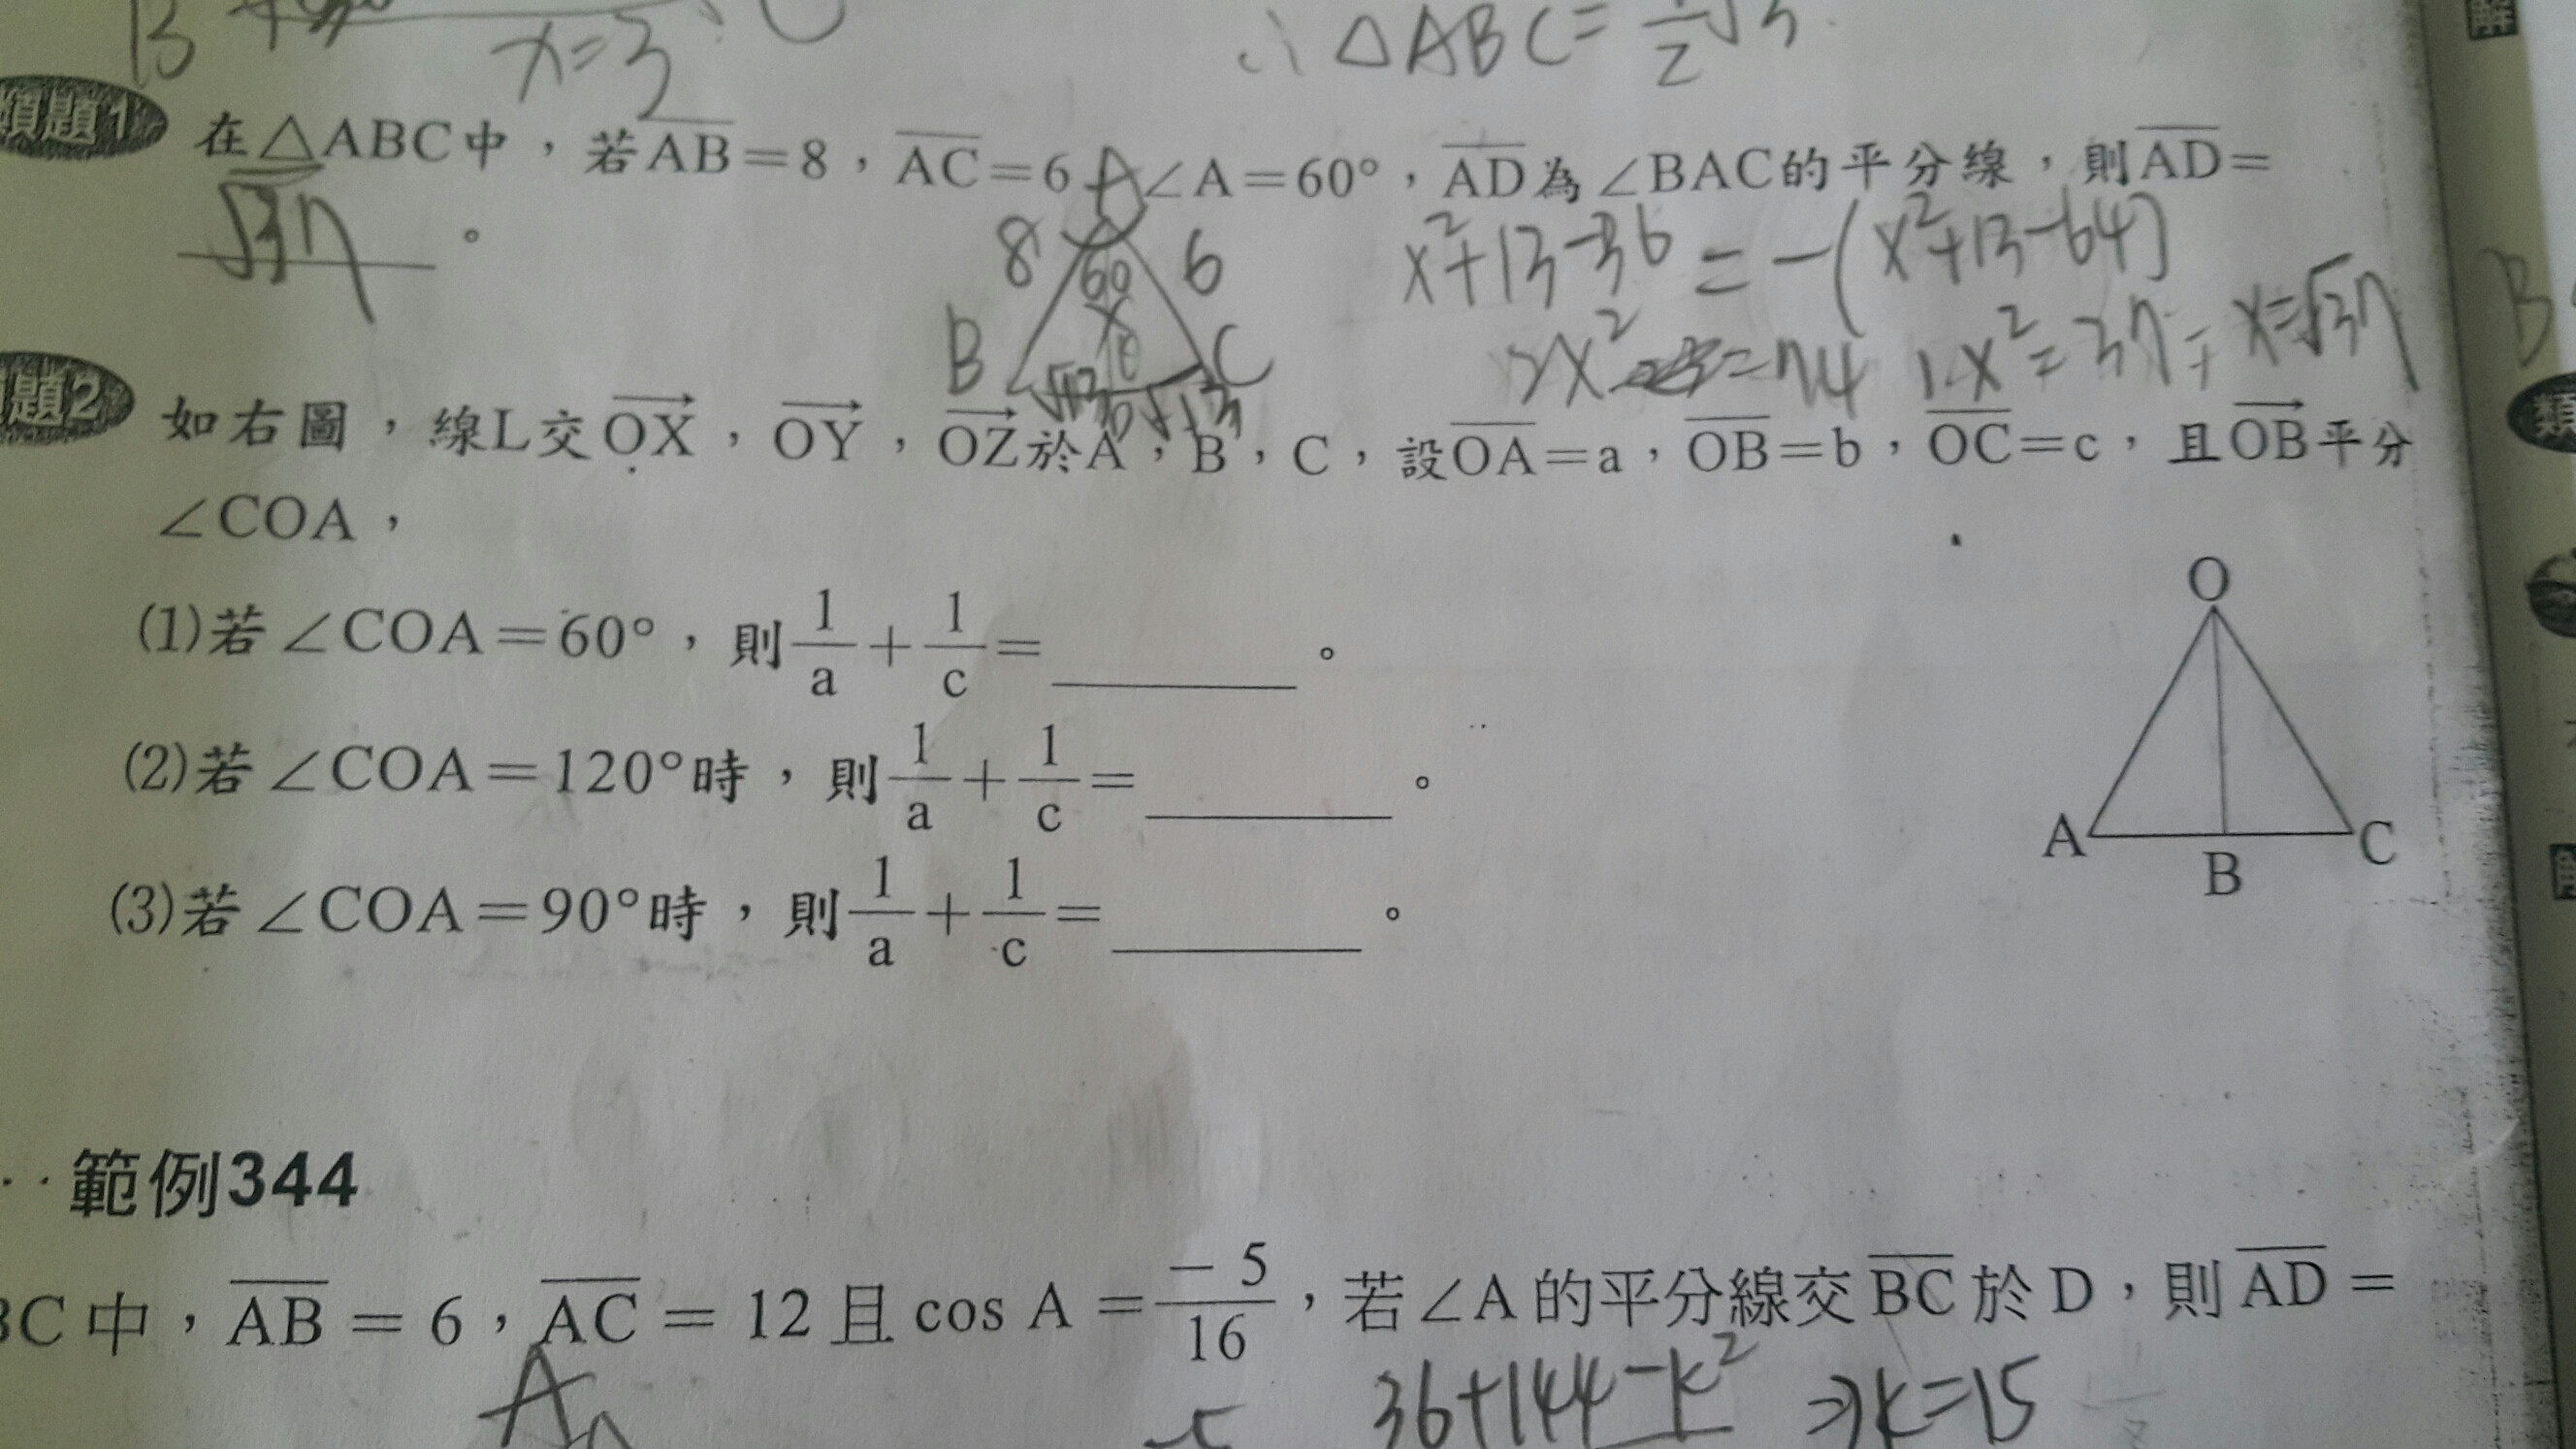 B
x=3
∴△ABC=
類題1 在△ABC中，若AB=8，AC=6 ∠A=60°，AD為∠BAC的平分線，則AD=
√37 。
A
8 60 6
x
B √13 D √13 C
x²+13-36=-(x²+13-64)
2x²=74 x²=37 x=√37
B
題2 如右圖，線L交OX，OY，OZ於A，B，C，設OA=a，OB=b，OC=c，且OB平分
∠COA，
(1)若∠COA=60°，則1/a+1/c=______。
(2)若∠COA=120°時，則1/a+1/c=______。
(3)若∠COA=90°時，則1/a+1/c=______。
O
A B C
範例344
BC中，AB=6，AC=12且cos A=-5/16，若∠A的平分線交BC於D，則AD=
A
36+144-k² ⇒k=15
解
類